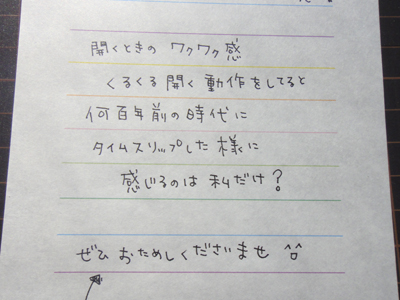 開くときの ワクワク感
くるくる開く動作をしてると
何百年前の時代に
タイムスリップした様に
感じるのは私だけ?
ぜひ おためしくださいませ ^^